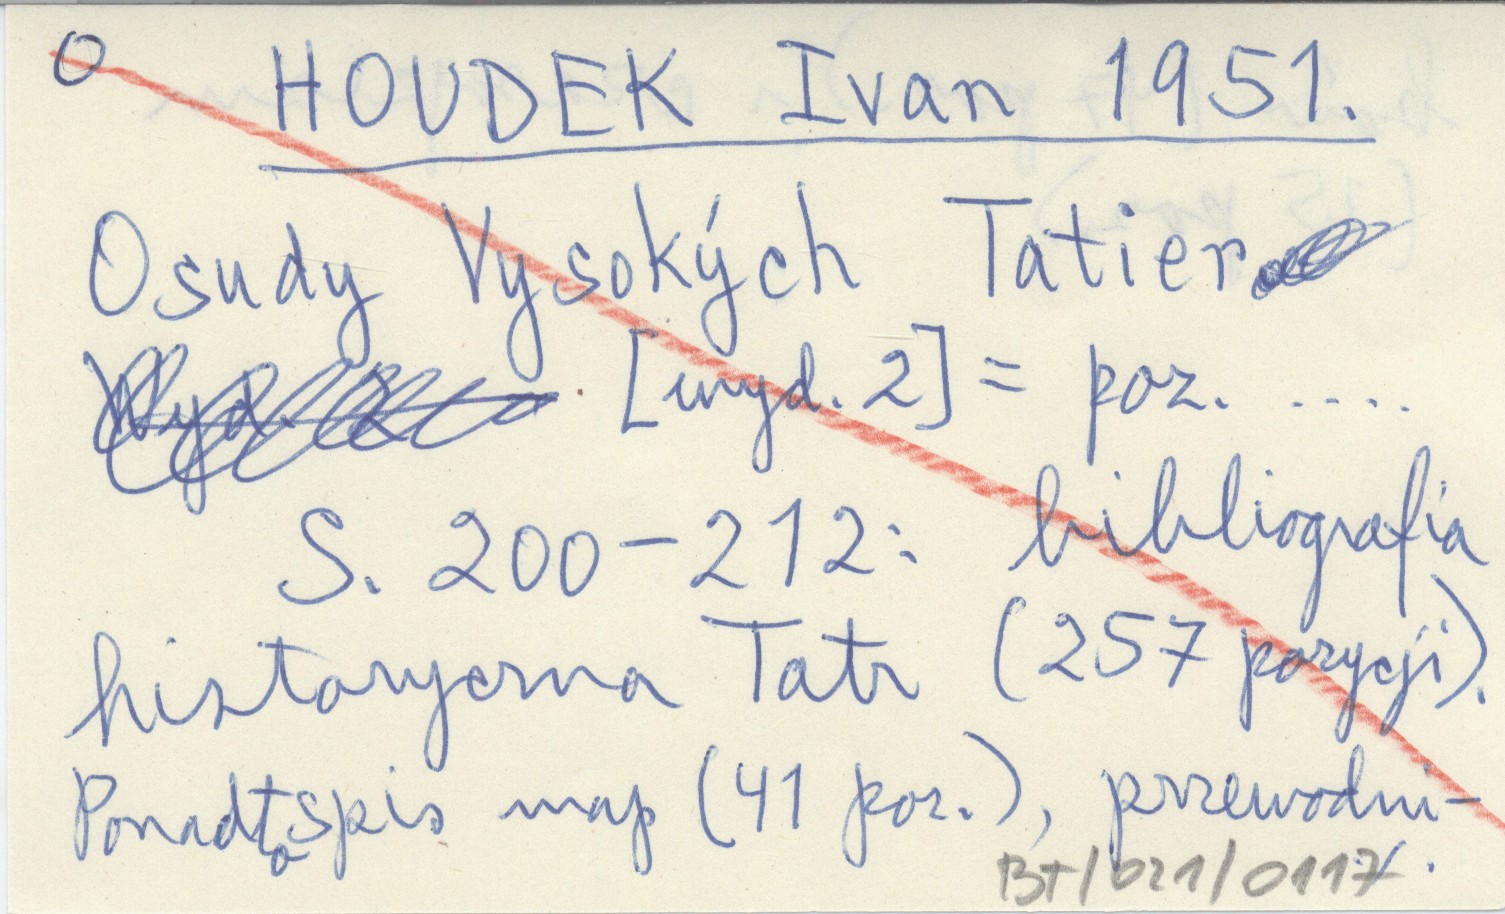 O HOUDEK Ivan 1951.
Osudy Vysokých Tatier
Wyd. 2 [wyd. 2] = poz. .....
S. 200-212: bibliografia
historyczna Tatr (257 pozycji).
Ponadto spis map (41 poz.), przewodni-
BT/021/0117.